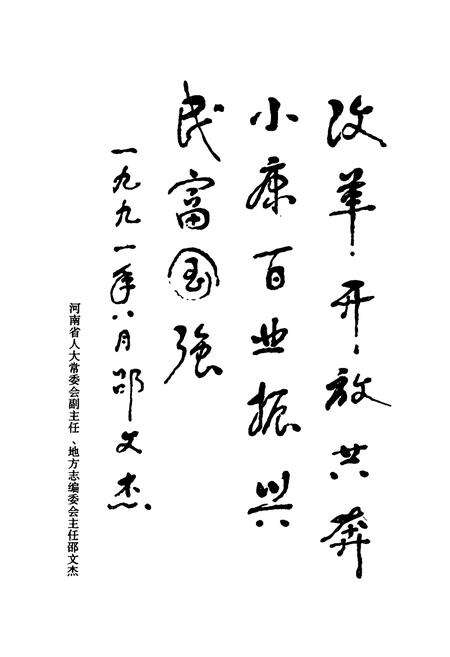 改革、开放共奔
小康百业振兴
民富国强
一九九一年八月邵文杰
河南省人大常委会副主任、地方志编委会主任邵文杰